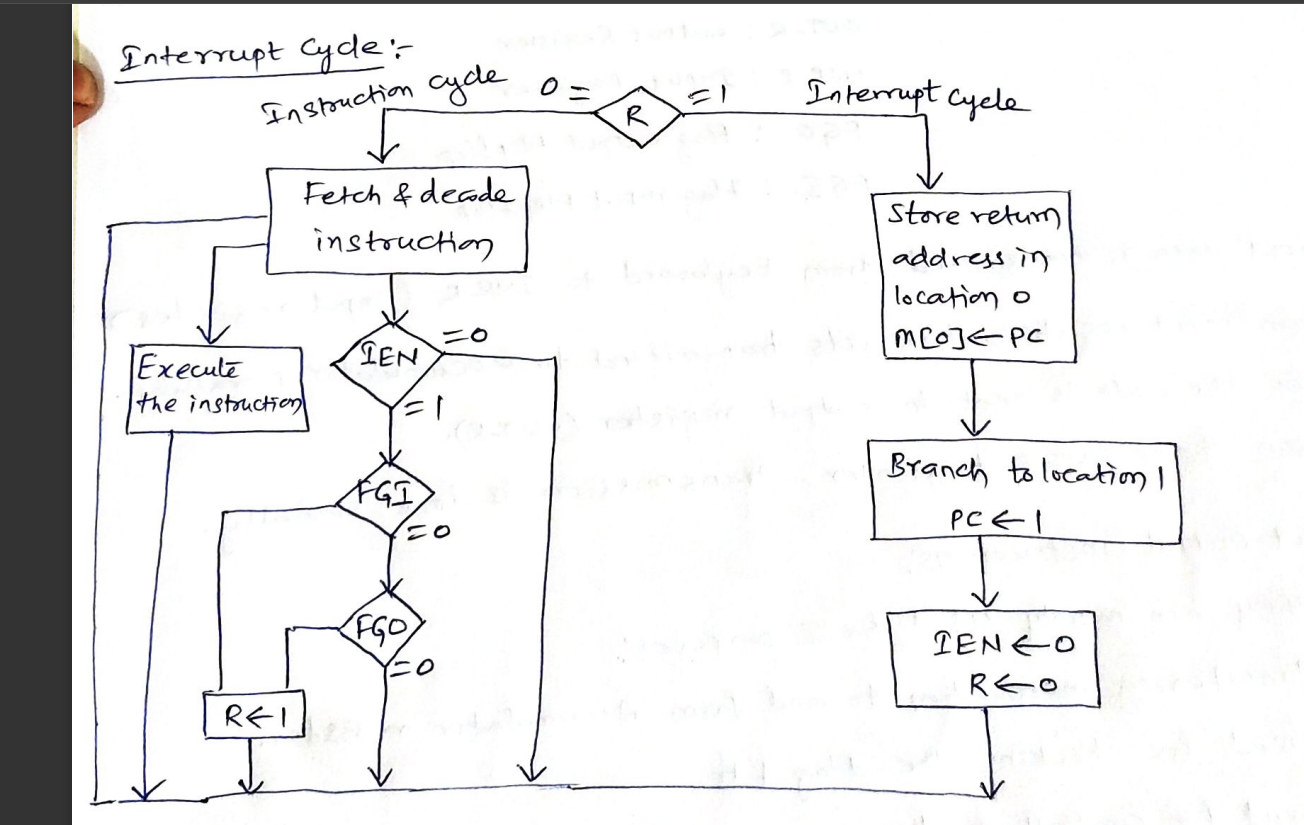 Interrupt Cycle :-
Instruction cycle
0 =
R
= 1
Interrupt Cycle
Fetch & decode
instruction
Execute
the instruction
IEN
= 0
= 1
FGI
= 0
FGO
= 0
R ← 1
Store return
address in
location 0
M[0] ← PC
Branch to location 1
PC ← 1
IEN ← 0
R ← 0